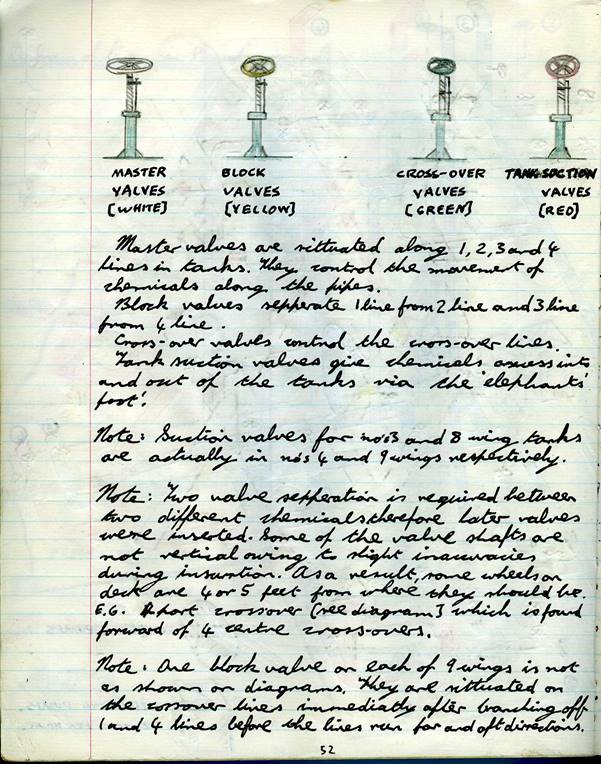 MASTER BLOCK CROSS-OVER TANK SUCTION
VALVES VALVES VALVES VALVES
[WHITE] [YELLOW] [GREEN] [RED]
Master valves are sittuated along 1, 2, 3 and 4
lines in tanks. They control the movement of
chemicals along the pipes.
Block valves sepperate 1 line from 2 line and 3 line
from 4 line.
Cross-over valves control the cross-over lines.
Tank suction valves give chemicals axcess into
and out of the tanks via the 'elephants'
foot'.
Note: Suction valves for no's 3 and 8 wing tanks
are actually in no's 4 and 9 wings respectively.
Note: Two valve sepperation is required between
two different chemicals therefore later valves
were inserted. Some of the valve shafts are
not vertical owing to slight inaccuracies
during insertion. As a result, some wheels on
deck are 4 or 5 feet from where they should be.
E.G. # port crossover [see diagram] which is found
forward of 4 centre cross-overs.
Note: One block valve on each of 9 wings is not
as shown on diagrams. They are sittuated on
the crossover lines immediatly after branching off
1 and 4 lines before the lines run for and aft directions.
52